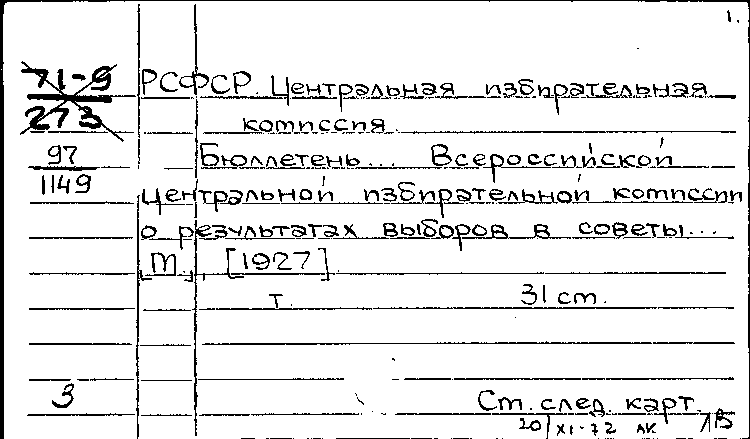 1.
71-9
273
97
1149
РСФСР. Центральная избирательная
комиссия.
Бюллетень... Всероссийской
центральной избирательной комиссии
о результатах выборов в советы...
[М.], [1927].
т. 31 см.
3
Ст. след. карт.
20/XI-72 ЛК